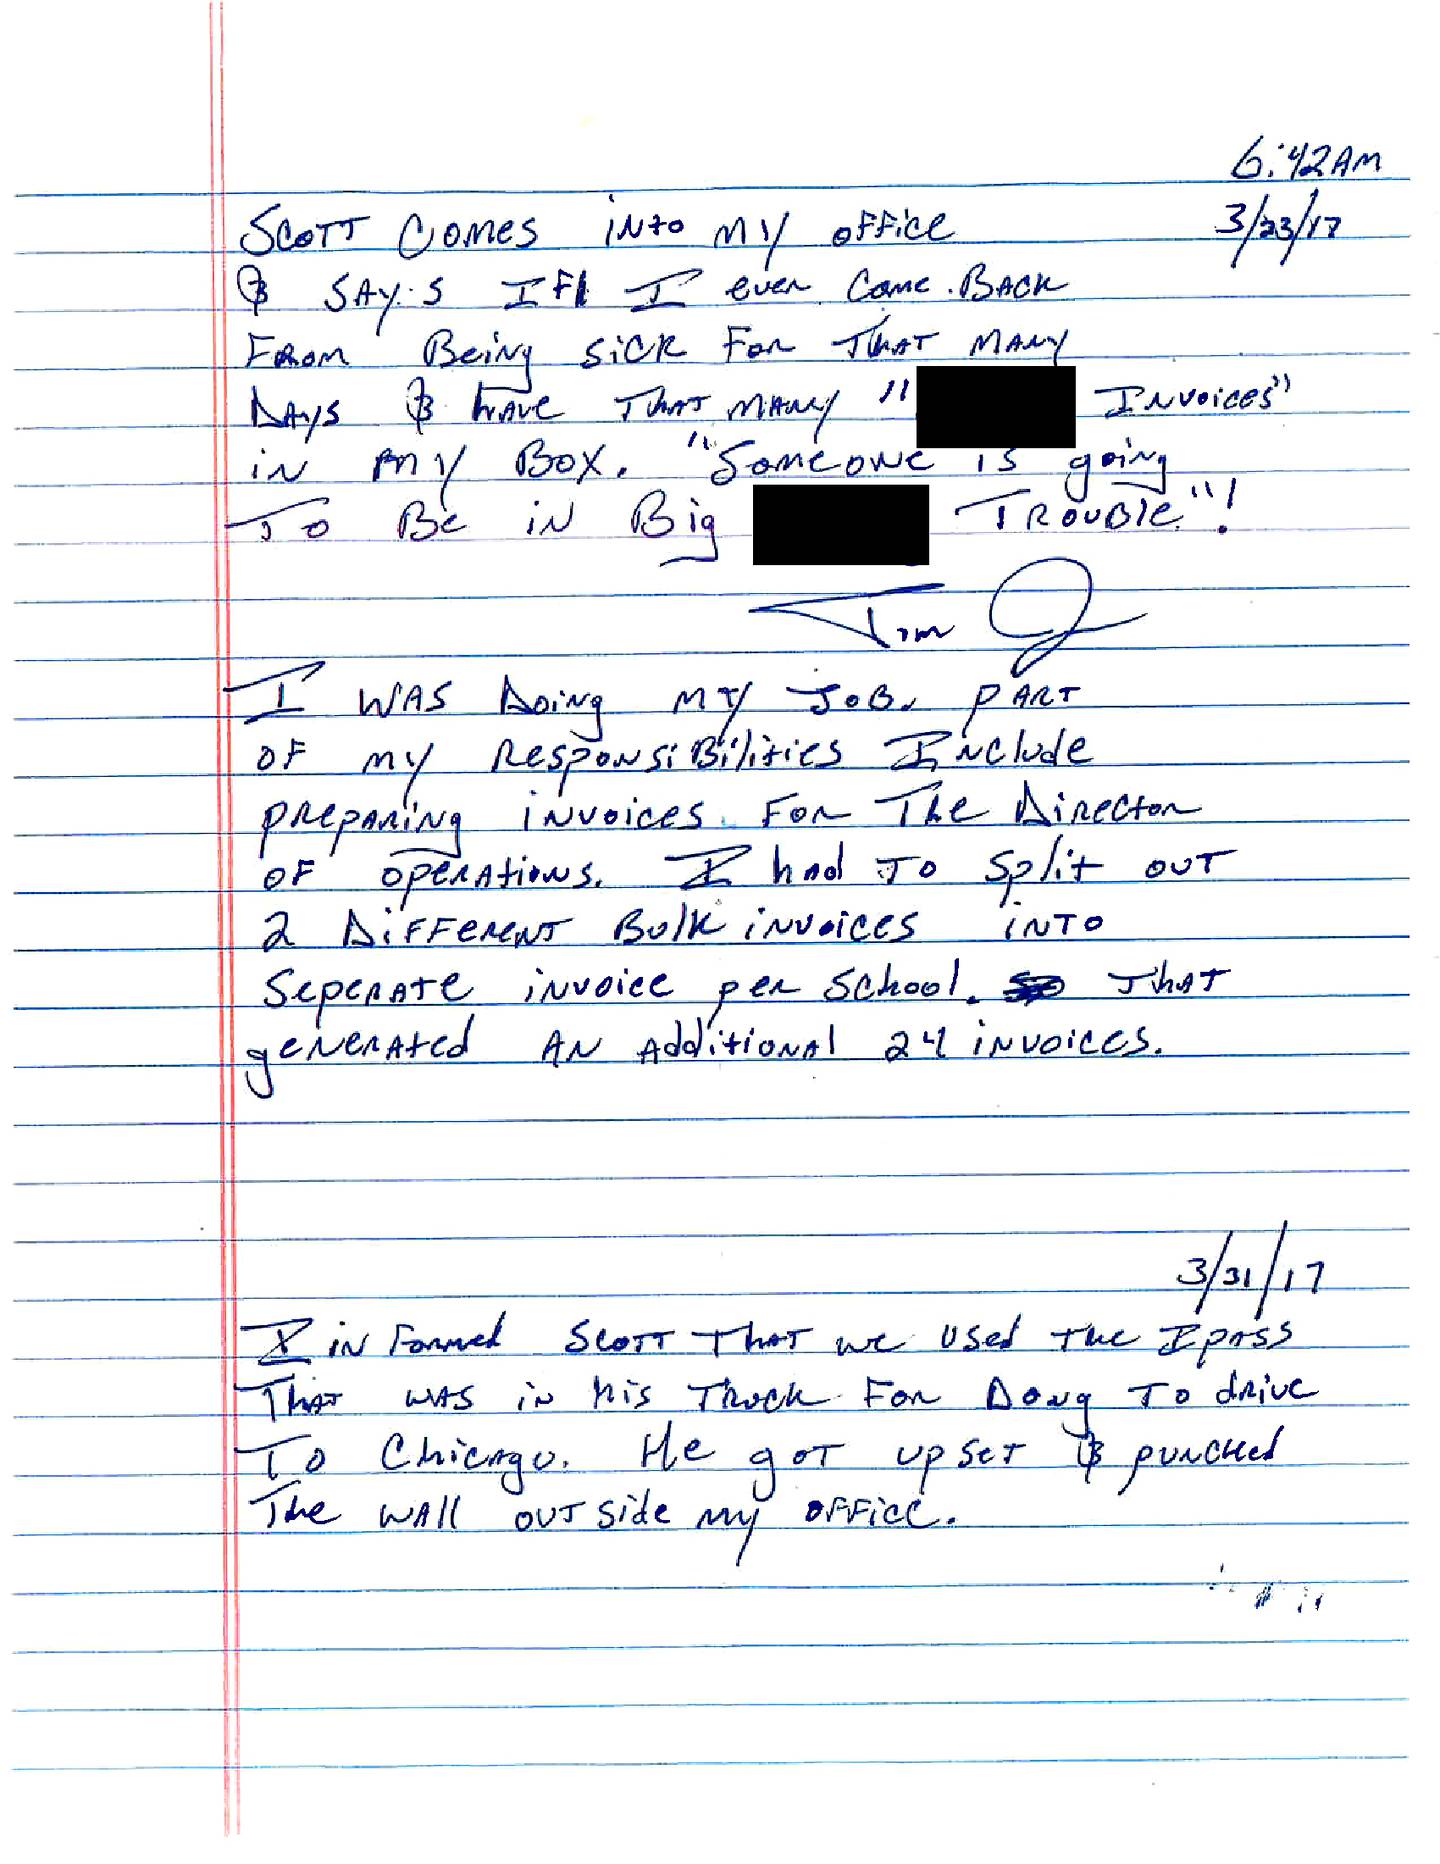 6:42AM
Scott comes into my office 3/23/17
& say's If I ever come back
from being sick for that many
days & have that many " Invoices"
in my box. "Someone is going
to be in Big Trouble."!
Tim
I was doing my job. part
of my responsibilities Include
preparing invoices for the Director
of operations. I had to split out
2 Different Bulk invoices into
Seperate invoice per School. That
generated an additional 24 invoices.
3/31/17
I informed Scott that we used the Ipass
that was in his truck for Doug to drive
to Chicago. He got upset & punched
the wall outside my office.